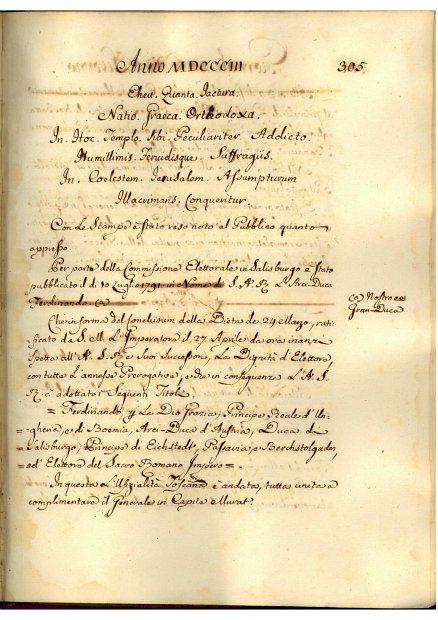 Anno MDCCCIII 305
Eheu. Quanta Jactura
Natio. Graeca. Orthodoxa.
In. Hoc. Templo. Sibi. Peculiariter. Addicto.
Humillimis. Suffragiis.
In. Coelestem. Jerusalem. Assumpturum
Illacrimans. Conqueritur.
Con le Stampe è stato reso noto al Pubblico quanto
appresso.
Per parte della Commissione Elettorale in Salisburgo è stato
pubblicato il dì 10 Luglio 1791 in Nome di S. A. R. L'Arci-Duca
Ferdinando. Ca
Ca Nostro ex
Gran-Duca
Che in forma del Conclusum della Dieta de 24 Marzo, rati-
ficato da S. M. L'Imperatore il 27 Aprile da ora innanzi
spetta all' A. S. R. e Suoi Successori, La Dignità d'Elettore,
con tutte l'annesse Prerogative, e che in conseguenza L'A. S.
R. à adottato i Seguenti Titoli
= Ferdinando La Dio Grazia, Principe Reale d'Un-
= gheria, e di Boemia, Arci-Duca d'Austria, Duca di
= Salisburgo, Principe di Eichstedt, Passavia, e Berchtolgaden,
ed Elettore del Sacro Romano Impero =.
In questa Toscana è andata, tutta unita a
complimentare il Generale in Capite Murat.